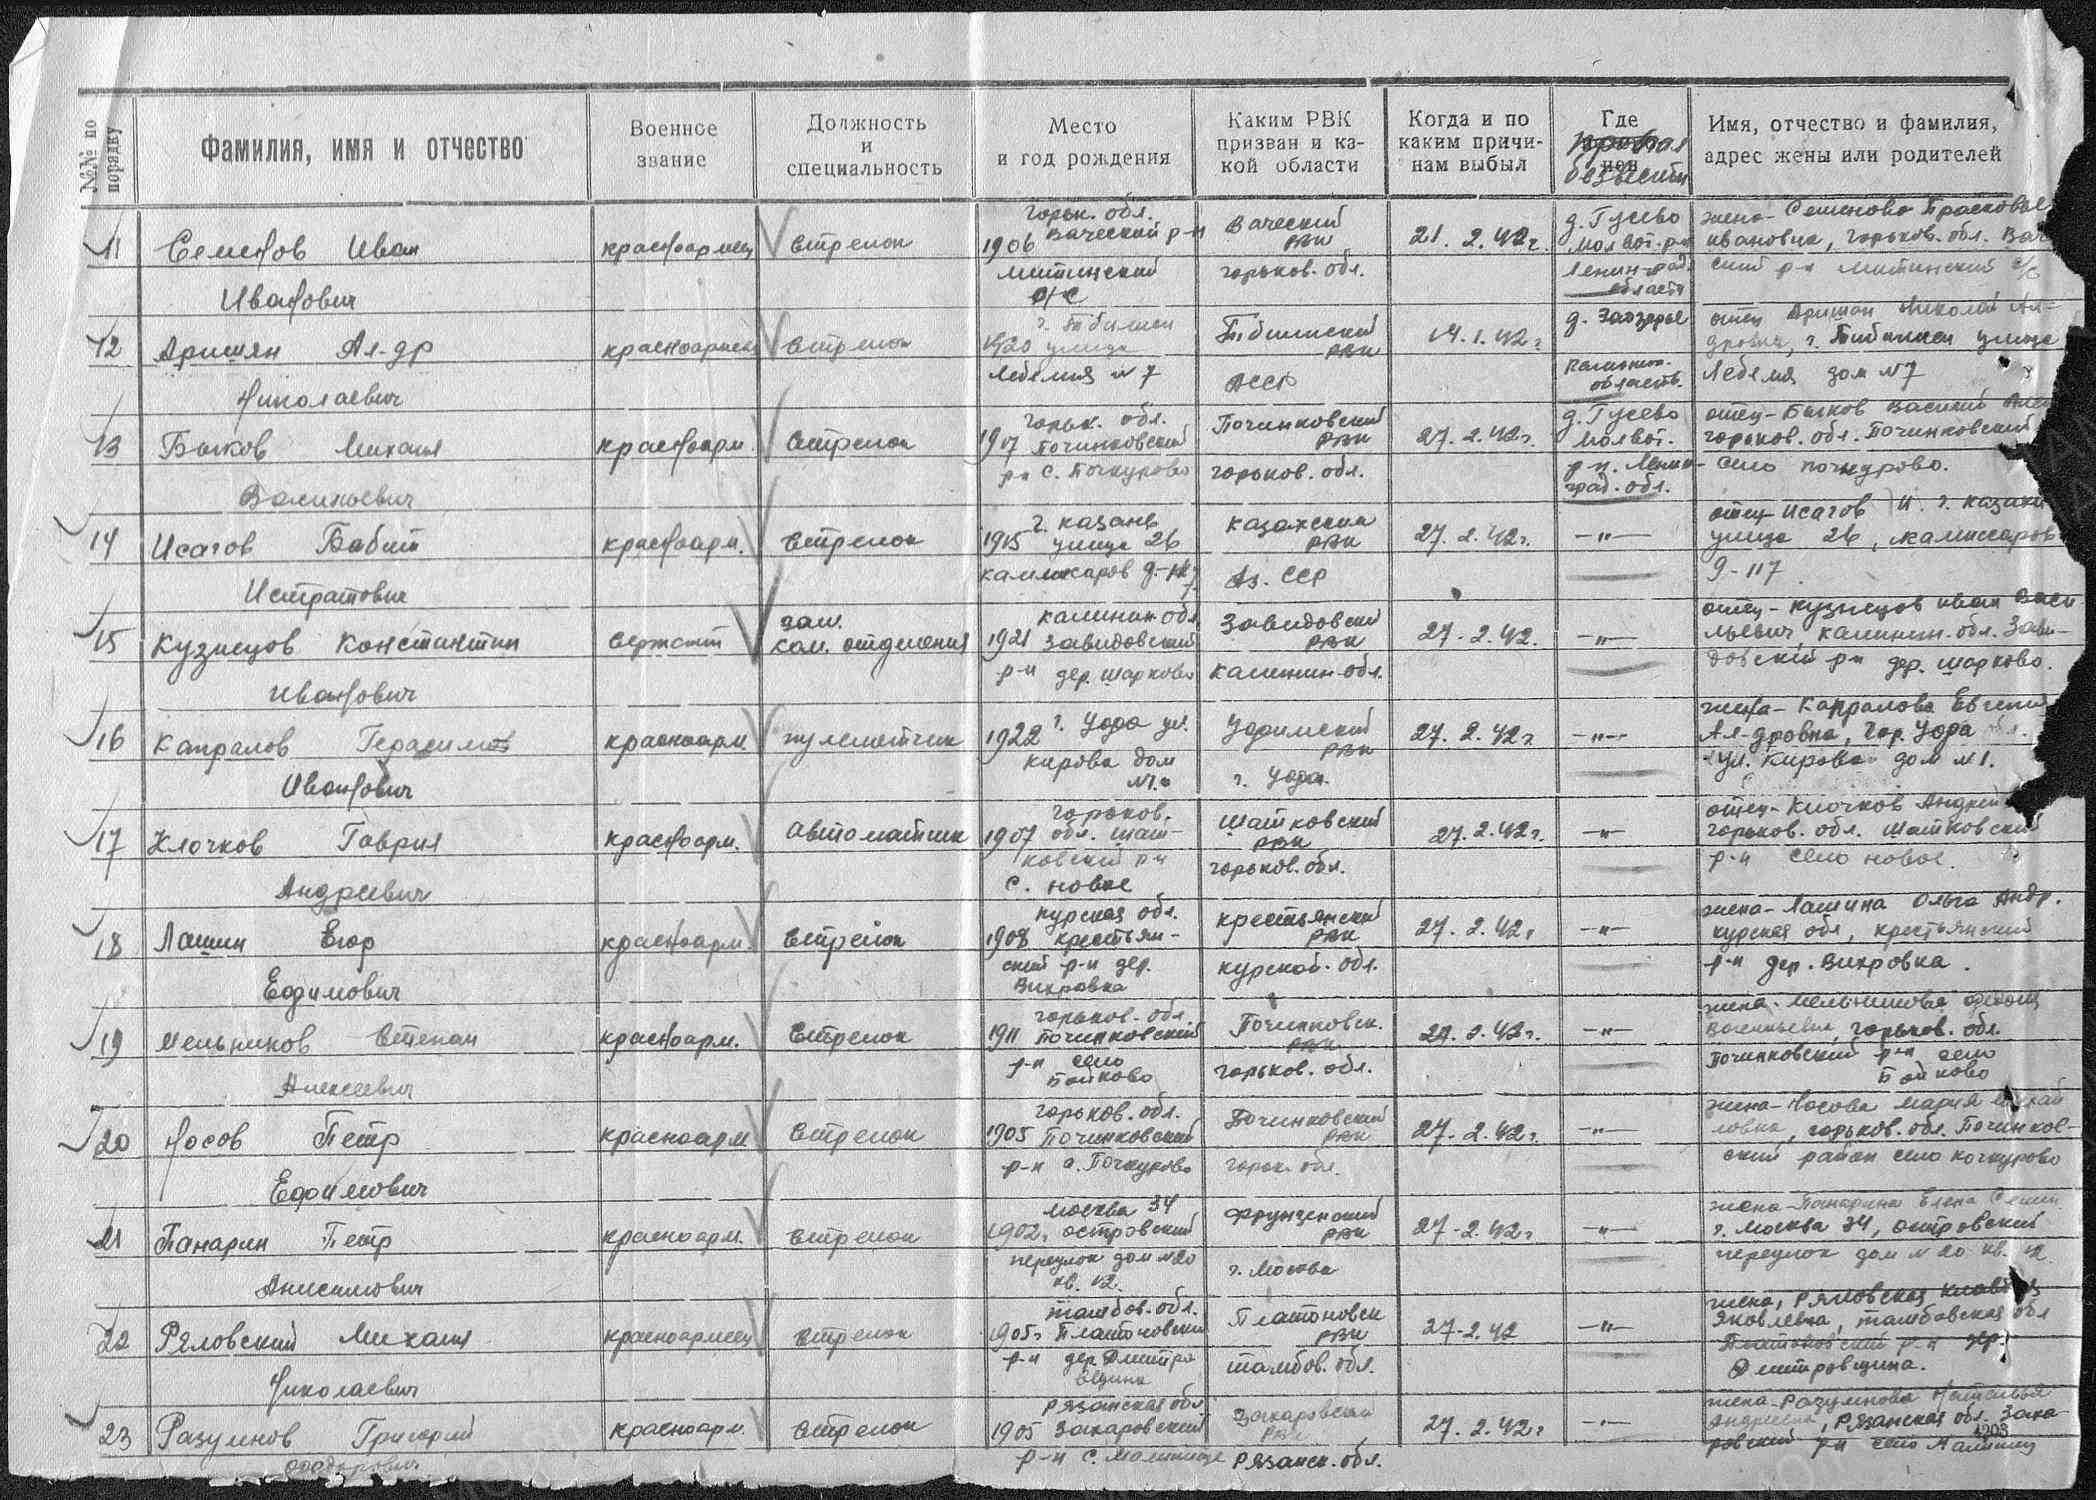 №№ по порядку
Фамилия, имя и отчество
Военное звание
Должность и специальность
Место и год рождения
Каким РВК призван и какой области
Когда и по каким причинам выбыл
Где
пропал
без вести
Имя, отчество и фамилия, адрес жены или родителей
11 Семенов Иван красноармеец Стрелок 1906 Горьк. обл. Ваческий р-н Ваческий РВК 21.2.42г. д. Гусево Молвот. р-н жена - Семенова Прасковья Ивановна, Горьков. обл. Вач
Иванович Митинский с/с Горьков. обл. Ленинград. область ский р-н Митинский с/с
12 Аришян Ал-др красноармеец Стрелок 1920 г. Тбилиси улица Тбилисский РВК 14.1.42г. д. Заозерье отец Аришян Николай Ал-дрович, г. Тбилиси улица
Николаевич №7 АССР область. дом №7
13 Быков Михаил красноарм. Стрелок 1907 Горьк. обл. Починковский Починковский РВК 27.2.42г. д. Гусево Молвот. отец - Быков Василий Горьков. обл. Починковский
Васильевич р-н с. Почкурово Горьков. обл. р-н. Ленинград. обл. село Почкурово.
14 Исагов красноарм. Стрелок 1915 г. Казань улица 26 Казахский РВК 27.2.42г. -"- отец Исагов И. г. Казань улица 26, комиссаров
комиссаров д-117 Аз. ССР д-117
15 Кузнецов Константин Сержант зам. ком. отделения 1921 Калинин. обл. Завидовский Завидовский РВК 27.2.42. -"- отец - Кузнецов Иван Васильевич, Калинин. обл. Зави-
Иванович р-н дер. Шарково Калинин. обл. довский р-н дер. Шарково.
16 Капралов Герасим красноарм. пулеметчик 1922 ул. РВК 27.2.42г. -"- жена - Капралова Евгения Ал-дровна, гор.
Иванович Кирова дом №1. ул. Кирова дом №1.
17 Клочков Гаврил красноарм. Автоматчик 1907 Горьков. обл. Шат- Шатковский РВК 27.2.42г. -"- отец - Клочков Андрей Горьков. обл. Шатковский
Андреевич ковский р-н с. Новое Горьков. обл. р-н село Новое.
18 Лашин Егор красноарм. Стрелок 1908 Курская обл. Крестьян- Крестьянский РВК 27.2.42г. -"- жена - Лашина Ольга Андр. Курская обл, Крестьянский
Ефимович ский р-н дер. Вихровка Курской обл. р-н дер. Вихровка.
19 Мельников Степан красноарм. Стрелок 1911 Горьков. обл. Починковский Починковск. РВК 27.2.42г. -"- жена - Мельникова Васильевна, Горьков. обл.
Алексеевич р-н село Байково Горьков. обл. Починковский р-н село Байково
20 Носов Петр красноарм Стрелок 1905 Горьков. обл. Починковский Починковский РВК 27.2.42г. -"- жена - Носова Мария Михайловна, Горьков. обл. Починков-
Ефимович р-н с. Почкурово Горьк. обл. ский район село Кочкурово
21 Панарин Петр красноарм. Стрелок 1902г. Москва 34 Островский Фрунзенский РВК 27.2.42г -"- жена - Панарина Елена Семен. г. Москва 34, Островский
Анисимович переулок дом №20 кв. 12. г. Москва переулок дом №20 кв. 12
22 Ряловский Михаил красноармеец Стрелок 1905г. Тамбов. обл. Платоновский Платоновск РВК 27.2.42 -"- жена, Ряловская Клавдия Яковлевна, Тамбовская обл
Николаевич р-н дер. Дмитровщина Тамбов. обл. Платоновский р-н дер. Дмитровщина.
23 Разумнов Григорий красноарм. Стрелок 1905 Рязанская обл Захаровский Захаровский РВК 27.2.42г -"- жена - Разумнова Наталья Андреевна, Рязанская обл. Заха-
Федорович р-н с. Рязанск. обл. ровский р-н село